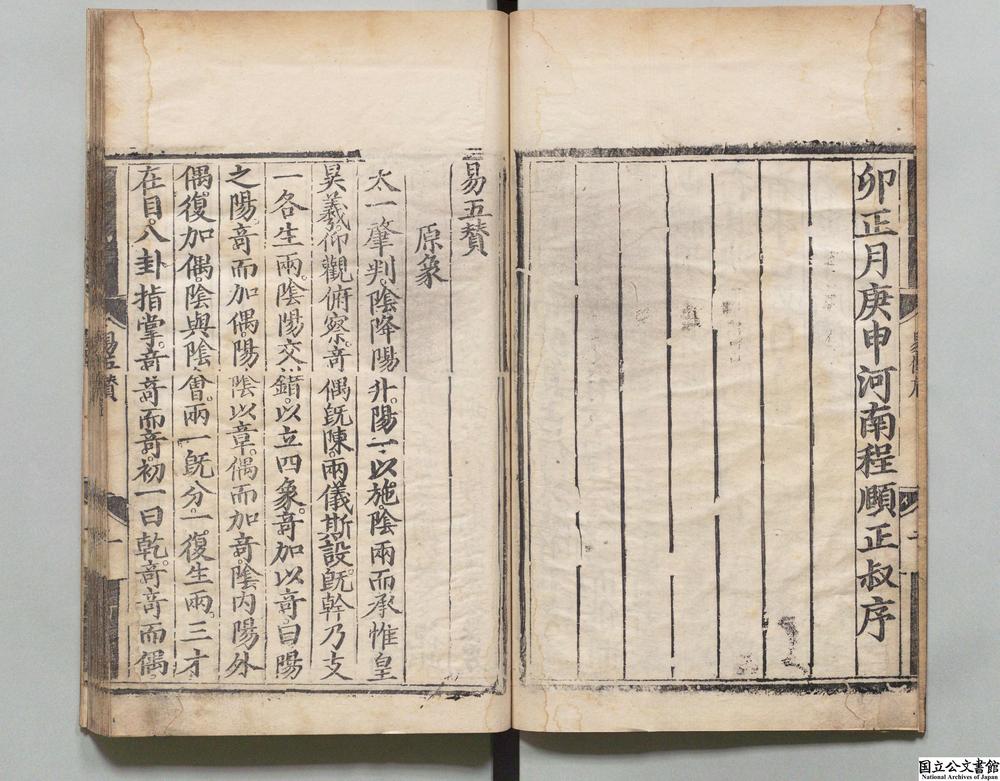 卯正月庚申河南程頤正叔序
易五賛
原象
太一肇判。陰降陽升。陽一以施。陰兩而承。惟皇
昊羲。仰觀俯察。奇偶既陳。兩儀斯設。既幹乃支
一各生兩。陰陽交錯。以立四象。奇加以奇。曰陽
之陽。奇而加偶。陽陰以章。偶而加奇。陰内陽外
偶復加偶。陰與陰會。兩一既分。一復生兩。三才
在目。八卦指掌。奇奇而奇。初一曰乾。奇奇而偶。
易五賛
一
国立公文書館
National Archives of Japan